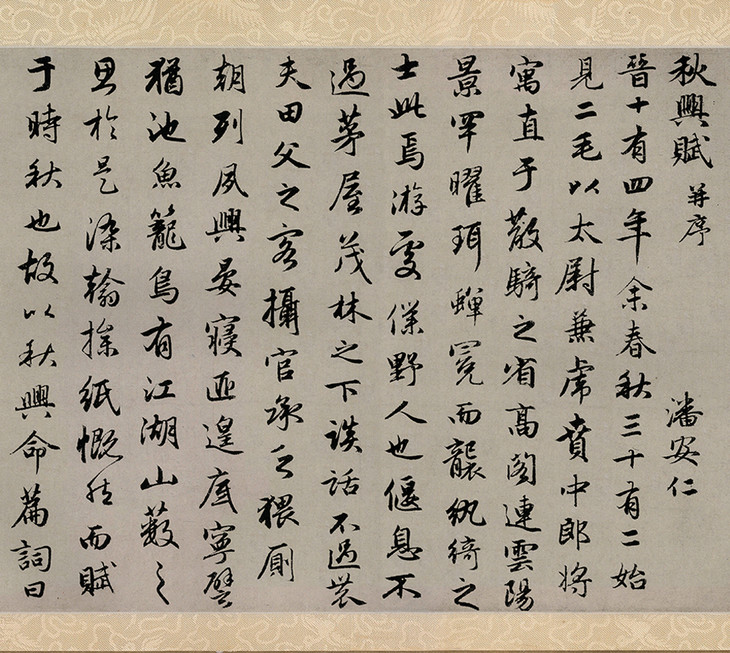 秋興賦 并序 潘安仁
晉十有四年余春秋三十有二始
見二毛以太尉兼虎賁中郎將
寓直于散騎之省高閣連雲陽
景罕曜珥蟬冕而襲紈綺之
士此焉游處僕野人也偃息不
過茅屋茂林之下談話不過農
夫田父之客攝官承乏猥廁
朝列夙興晏寢匪遑底寧譬
猶池魚籠鳥有江湖山藪之
思於是染翰操紙慨然而賦
于時秋也故以秋興命篇詞曰